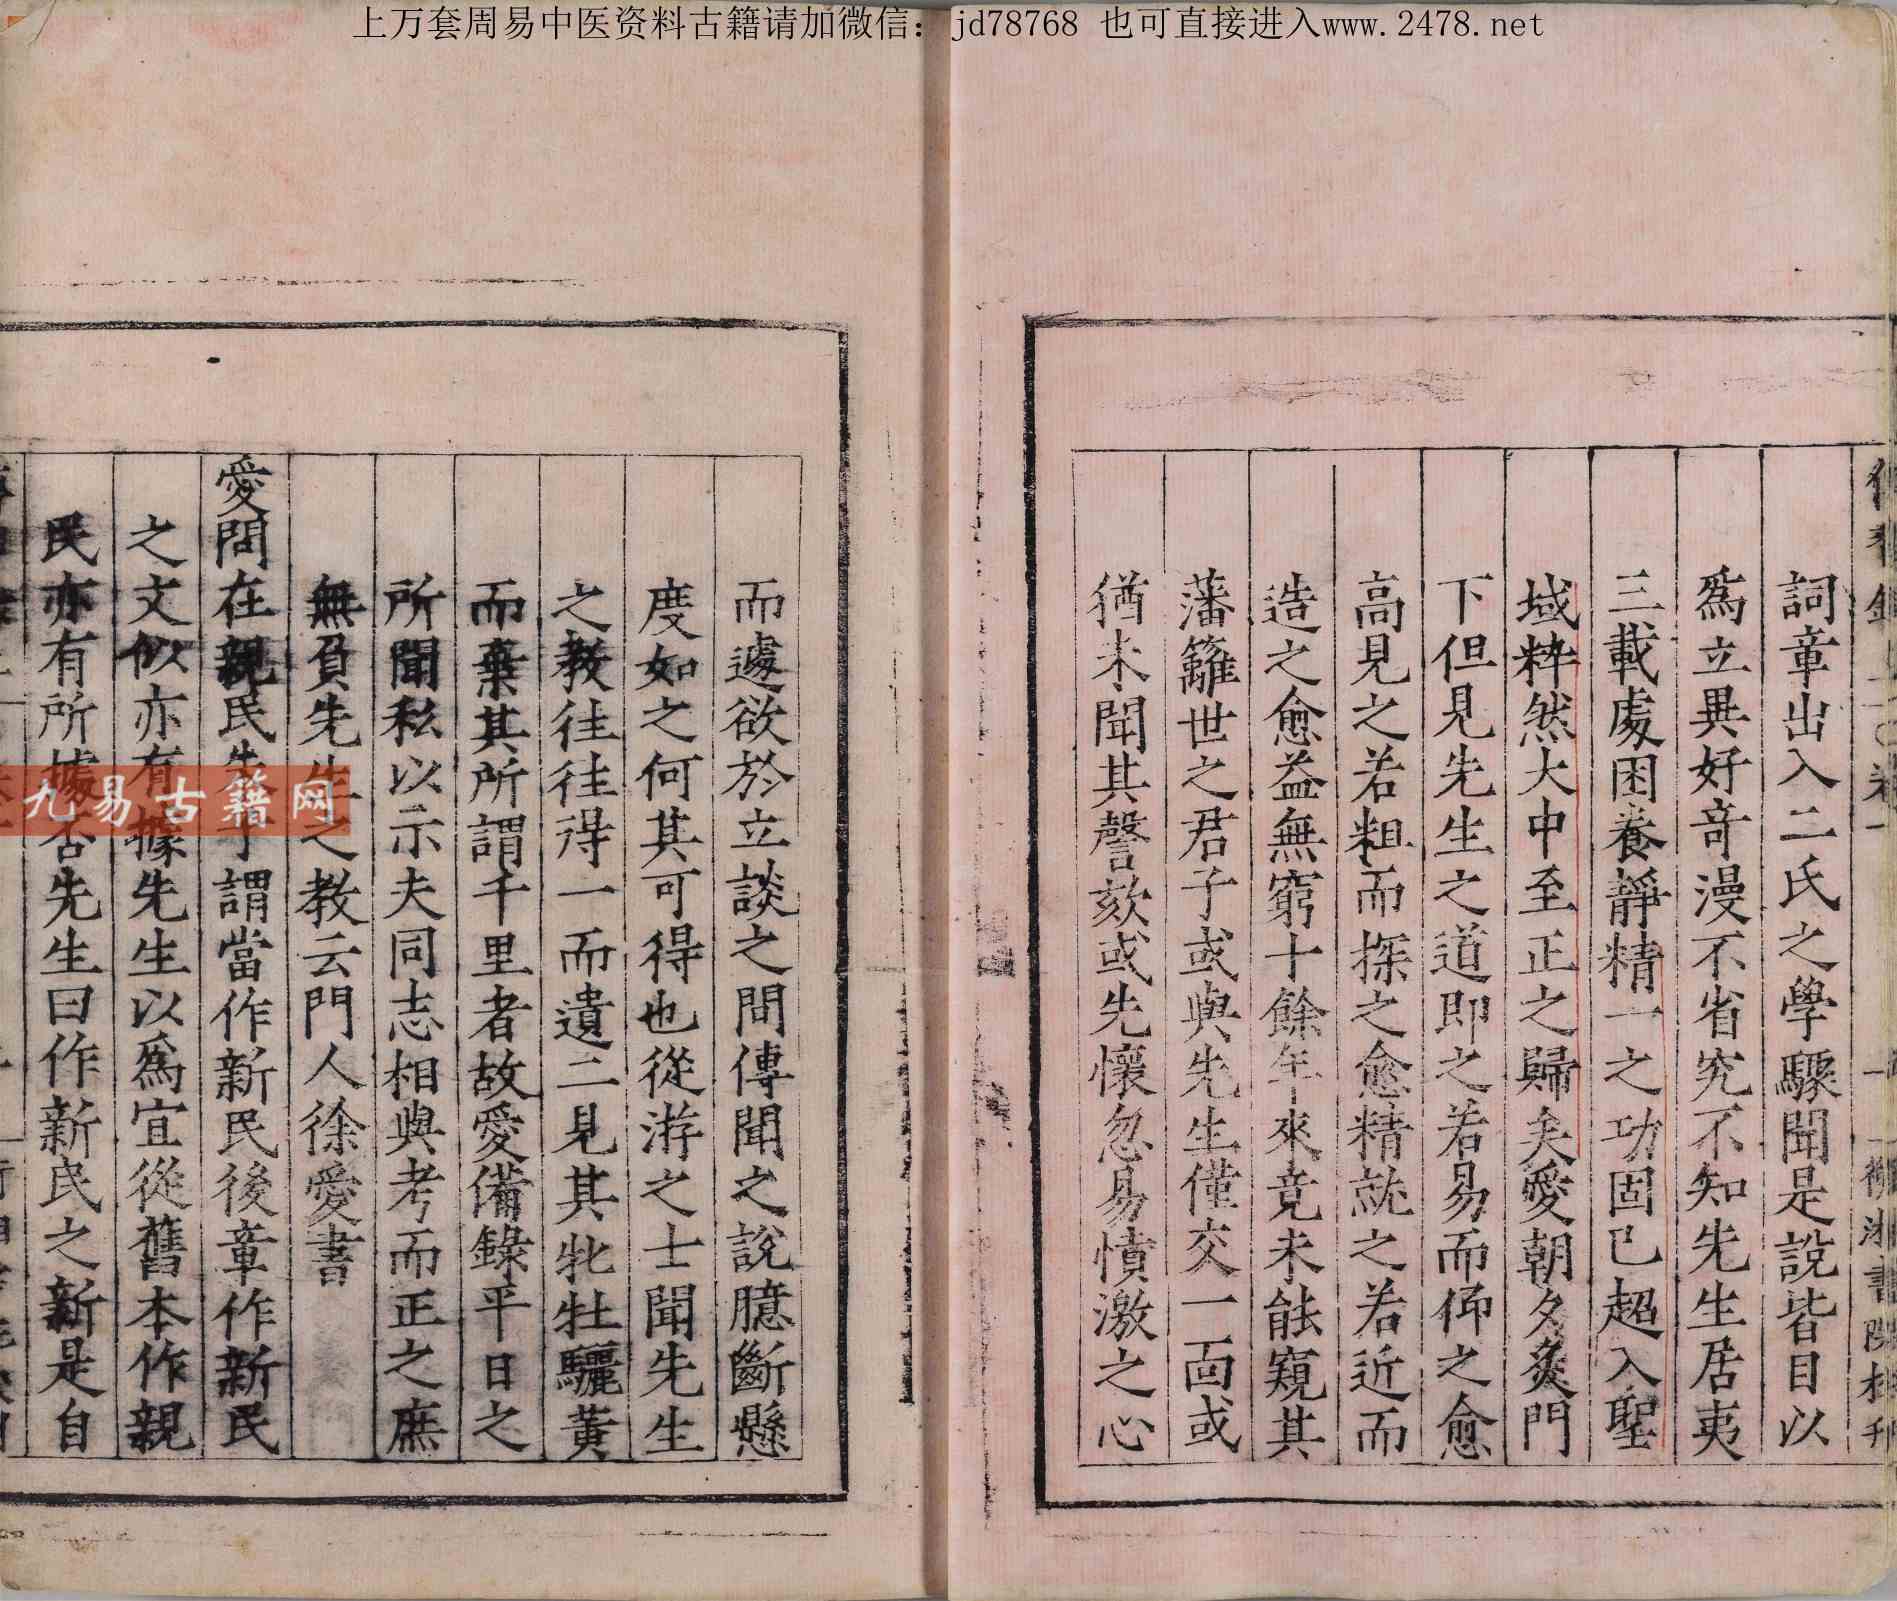 上万套周易中医资料古籍请加微信：jd78768 也可直接进入www.2478.net
詞章出入二氏之學驟聞是說皆目以
爲立異好奇漫不省究不知先生居夷
三載處困養靜精一之功固已超入聖
域粹然大中至正之歸矣愛朝夕炙門
下但見先生之道即之若易而仰之愈
高見之若粗而探之愈精就之若近而
造之愈益無窮十餘年來竟未能窺其
藩籬世之君子或與先生僅交一面或
猶未聞其謦欬或先懷忽易憤激之心
而遽欲於立談之間傳聞之說臆斷懸
度如之何其可得也從游之士聞先生
之教徃徃得一而遺二見其牝牡驪黃
而棄其所謂千里者故愛備錄平日之
所聞私以示夫同志相與考而正之庶
無負先生之教云門人徐愛書
愛問在親民謂當作新民後章作新民
之文似亦有據先生以爲宜從舊本作親
民亦有所據否先生曰作新民之新是自
九易古籍网